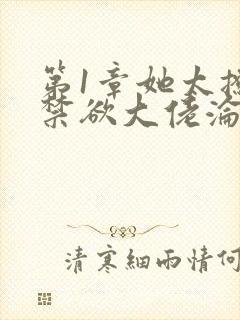 第1章她太撩
禁欲大佬淪
清寒細雨情何